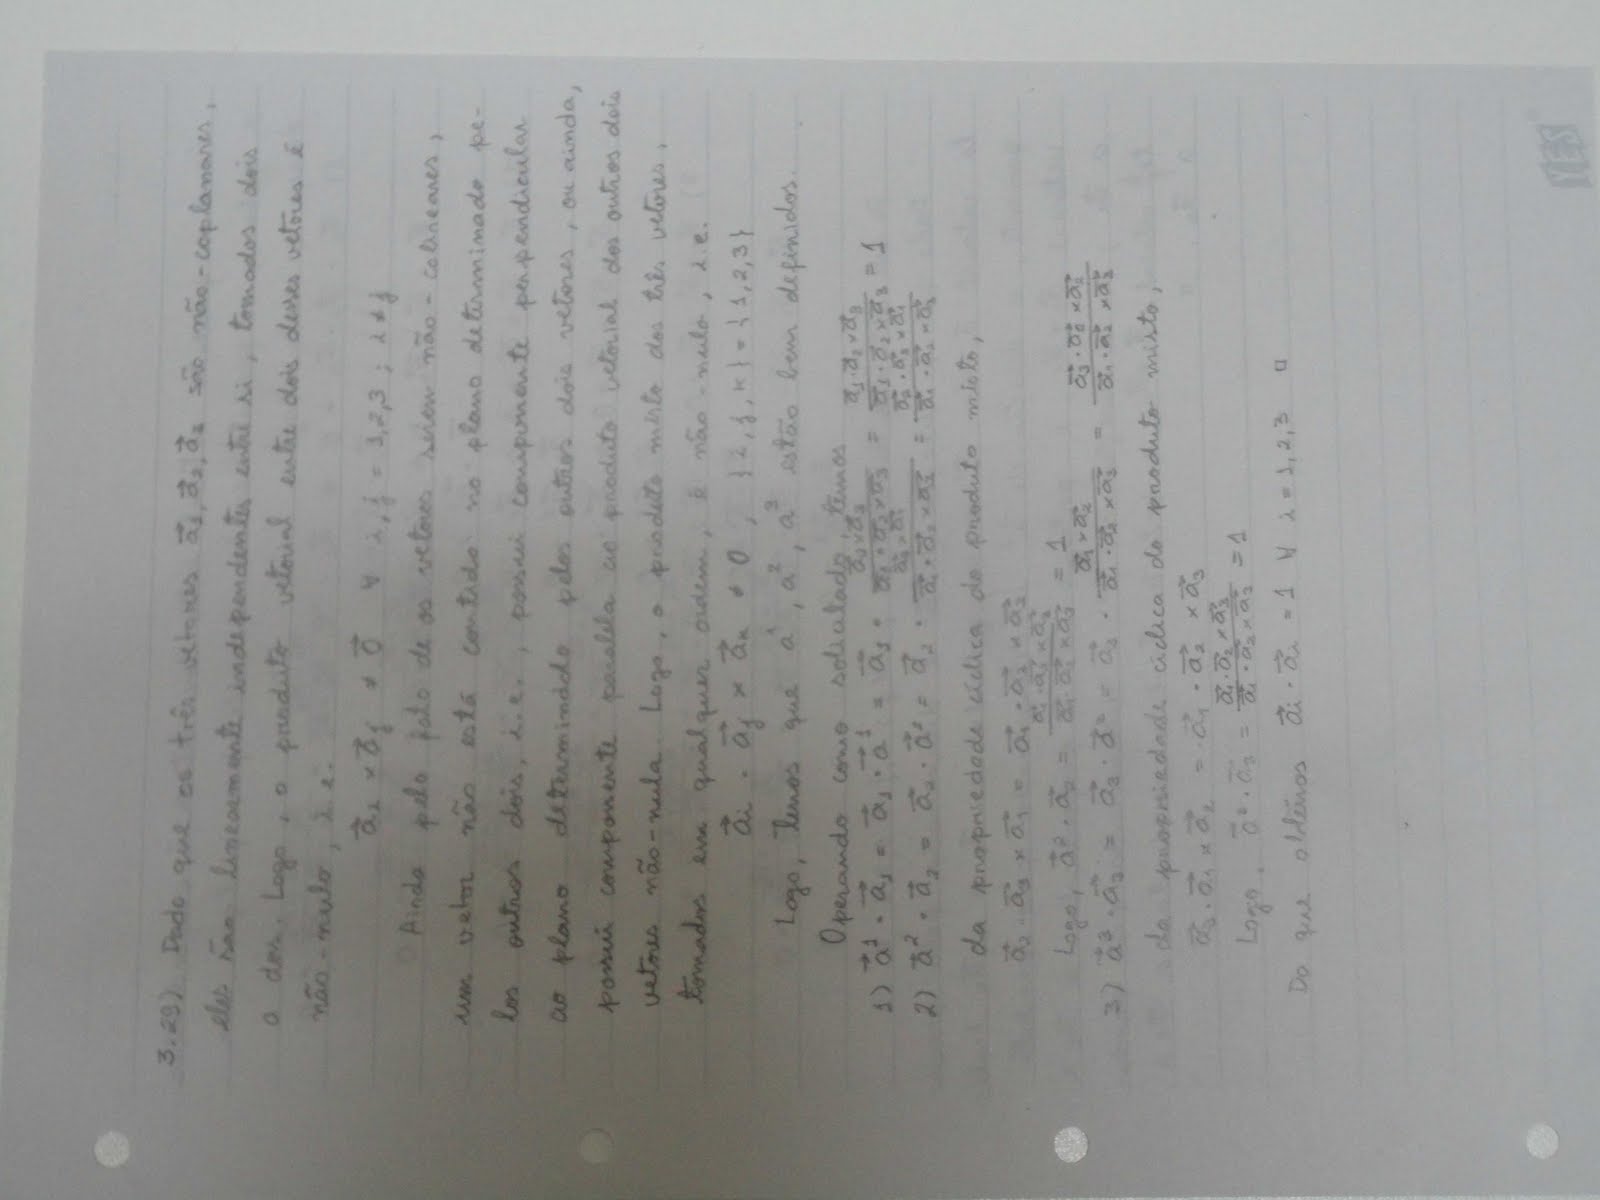 3.29) Dado que os três vetores a⃗₁, a⃗₂, a⃗₃ são não-coplanares,
eles são linearmente independentes entre si, tomados dois
a dois. Logo, o produto vetorial entre dois desses vetores é
não-nulo, i.e.
a⃗ᵢ × a⃗ⱼ ≠ 0⃗ ∀ i, j = 1,2,3 ; i ≠ j
Ainda pelo fato de os vetores serem não-colineares,
um vetor não está contido no plano determinado pe-
los outros dois, i.e., possui componente perpendicular
ao plano determinado pelos outros dois vetores, ou ainda,
possui componente paralela ao produto vetorial dos outros dois
vetores não-nula. Logo, o produto misto dos três vetores,
tomados em qualquer ordem, é não-nulo, i.e.
a⃗ᵢ · a⃗ⱼ × a⃗ₖ ≠ 0, {i, j, k} = {1,2,3}
Logo, temos que a¹, a², a³ estão bem definidos.
Operando como solicitado, temos
1) a⃗¹ · a⃗₁ = a⃗₁ · a⃗¹ = a⃗₁ · (a⃗₂ × a⃗₃)/(a⃗₁ · a⃗₂ × a⃗₃) = (a⃗₁ · a⃗₂ × a⃗₃)/(a⃗₁ · a⃗₂ × a⃗₃) = 1
2) a⃗² · a⃗₂ = a⃗₂ · a⃗² = a⃗₂ · (a⃗₃ × a⃗₁)/(a⃗₁ · a⃗₂ × a⃗₃) = (a⃗₂ · a⃗₃ × a⃗₁)/(a⃗₁ · a⃗₂ × a⃗₃)
da propriedade cíclica do produto misto,
a⃗₂ · a⃗₃ × a⃗₁ = a⃗₁ · a⃗₂ × a⃗₃
Logo, a⃗² · a⃗₂ = (a⃗₁ · a⃗₂ × a⃗₃)/(a⃗₁ · a⃗₂ × a⃗₃) = 1
3) a⃗³ · a⃗₃ = a⃗₃ · a⃗³ = a⃗₃ · (a⃗₁ × a⃗₂)/(a⃗₁ · a⃗₂ × a⃗₃) = (a⃗₃ · a⃗₁ × a⃗₂)/(a⃗₁ · a⃗₂ × a⃗₃)
da propriedade cíclica do produto misto,
a⃗₃ · a⃗₁ × a⃗₂ = a⃗₁ · a⃗₂ × a⃗₃
Logo, a⃗³ · a⃗₃ = (a⃗₁ · a⃗₂ × a⃗₃)/(a⃗₁ · a⃗₂ × a⃗₃) = 1
Do que obtémos a⃗ⁱ · a⃗ᵢ = 1 ∀ i = 1,2,3 □